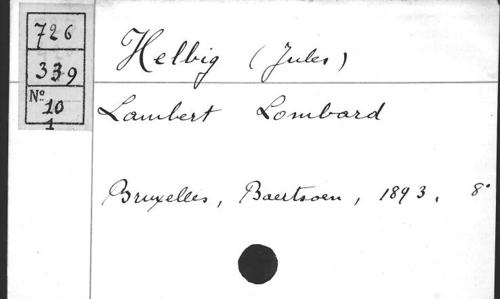 726
339
Nº 10
1
Helbig (Jules)
Lambert Lombard
Bruxelles, Baertsoen, 1893. 8°